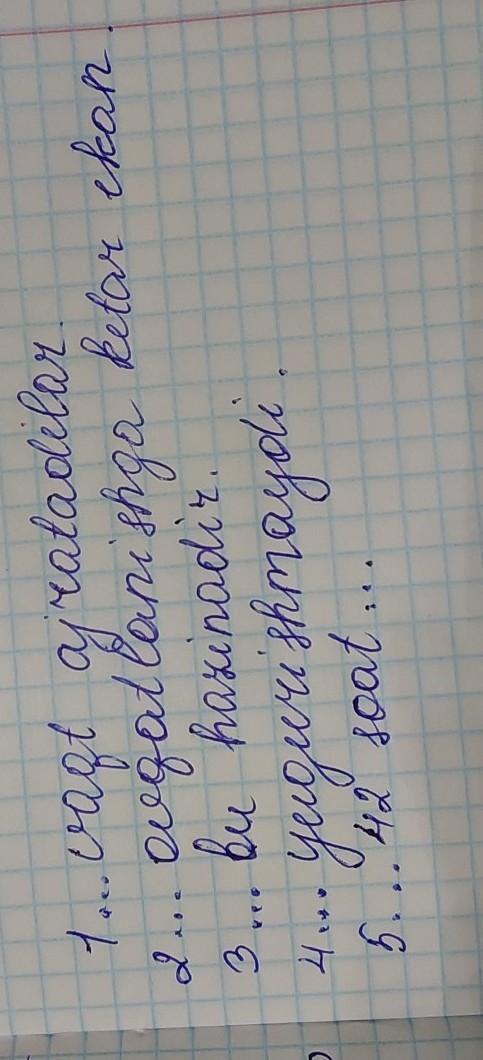 1... vaqt ajratadilar.
2... ovqatlanishga ketar ekan.
3... bu hazinadir.
4... yugurishmaydi.
5... 42 soat...